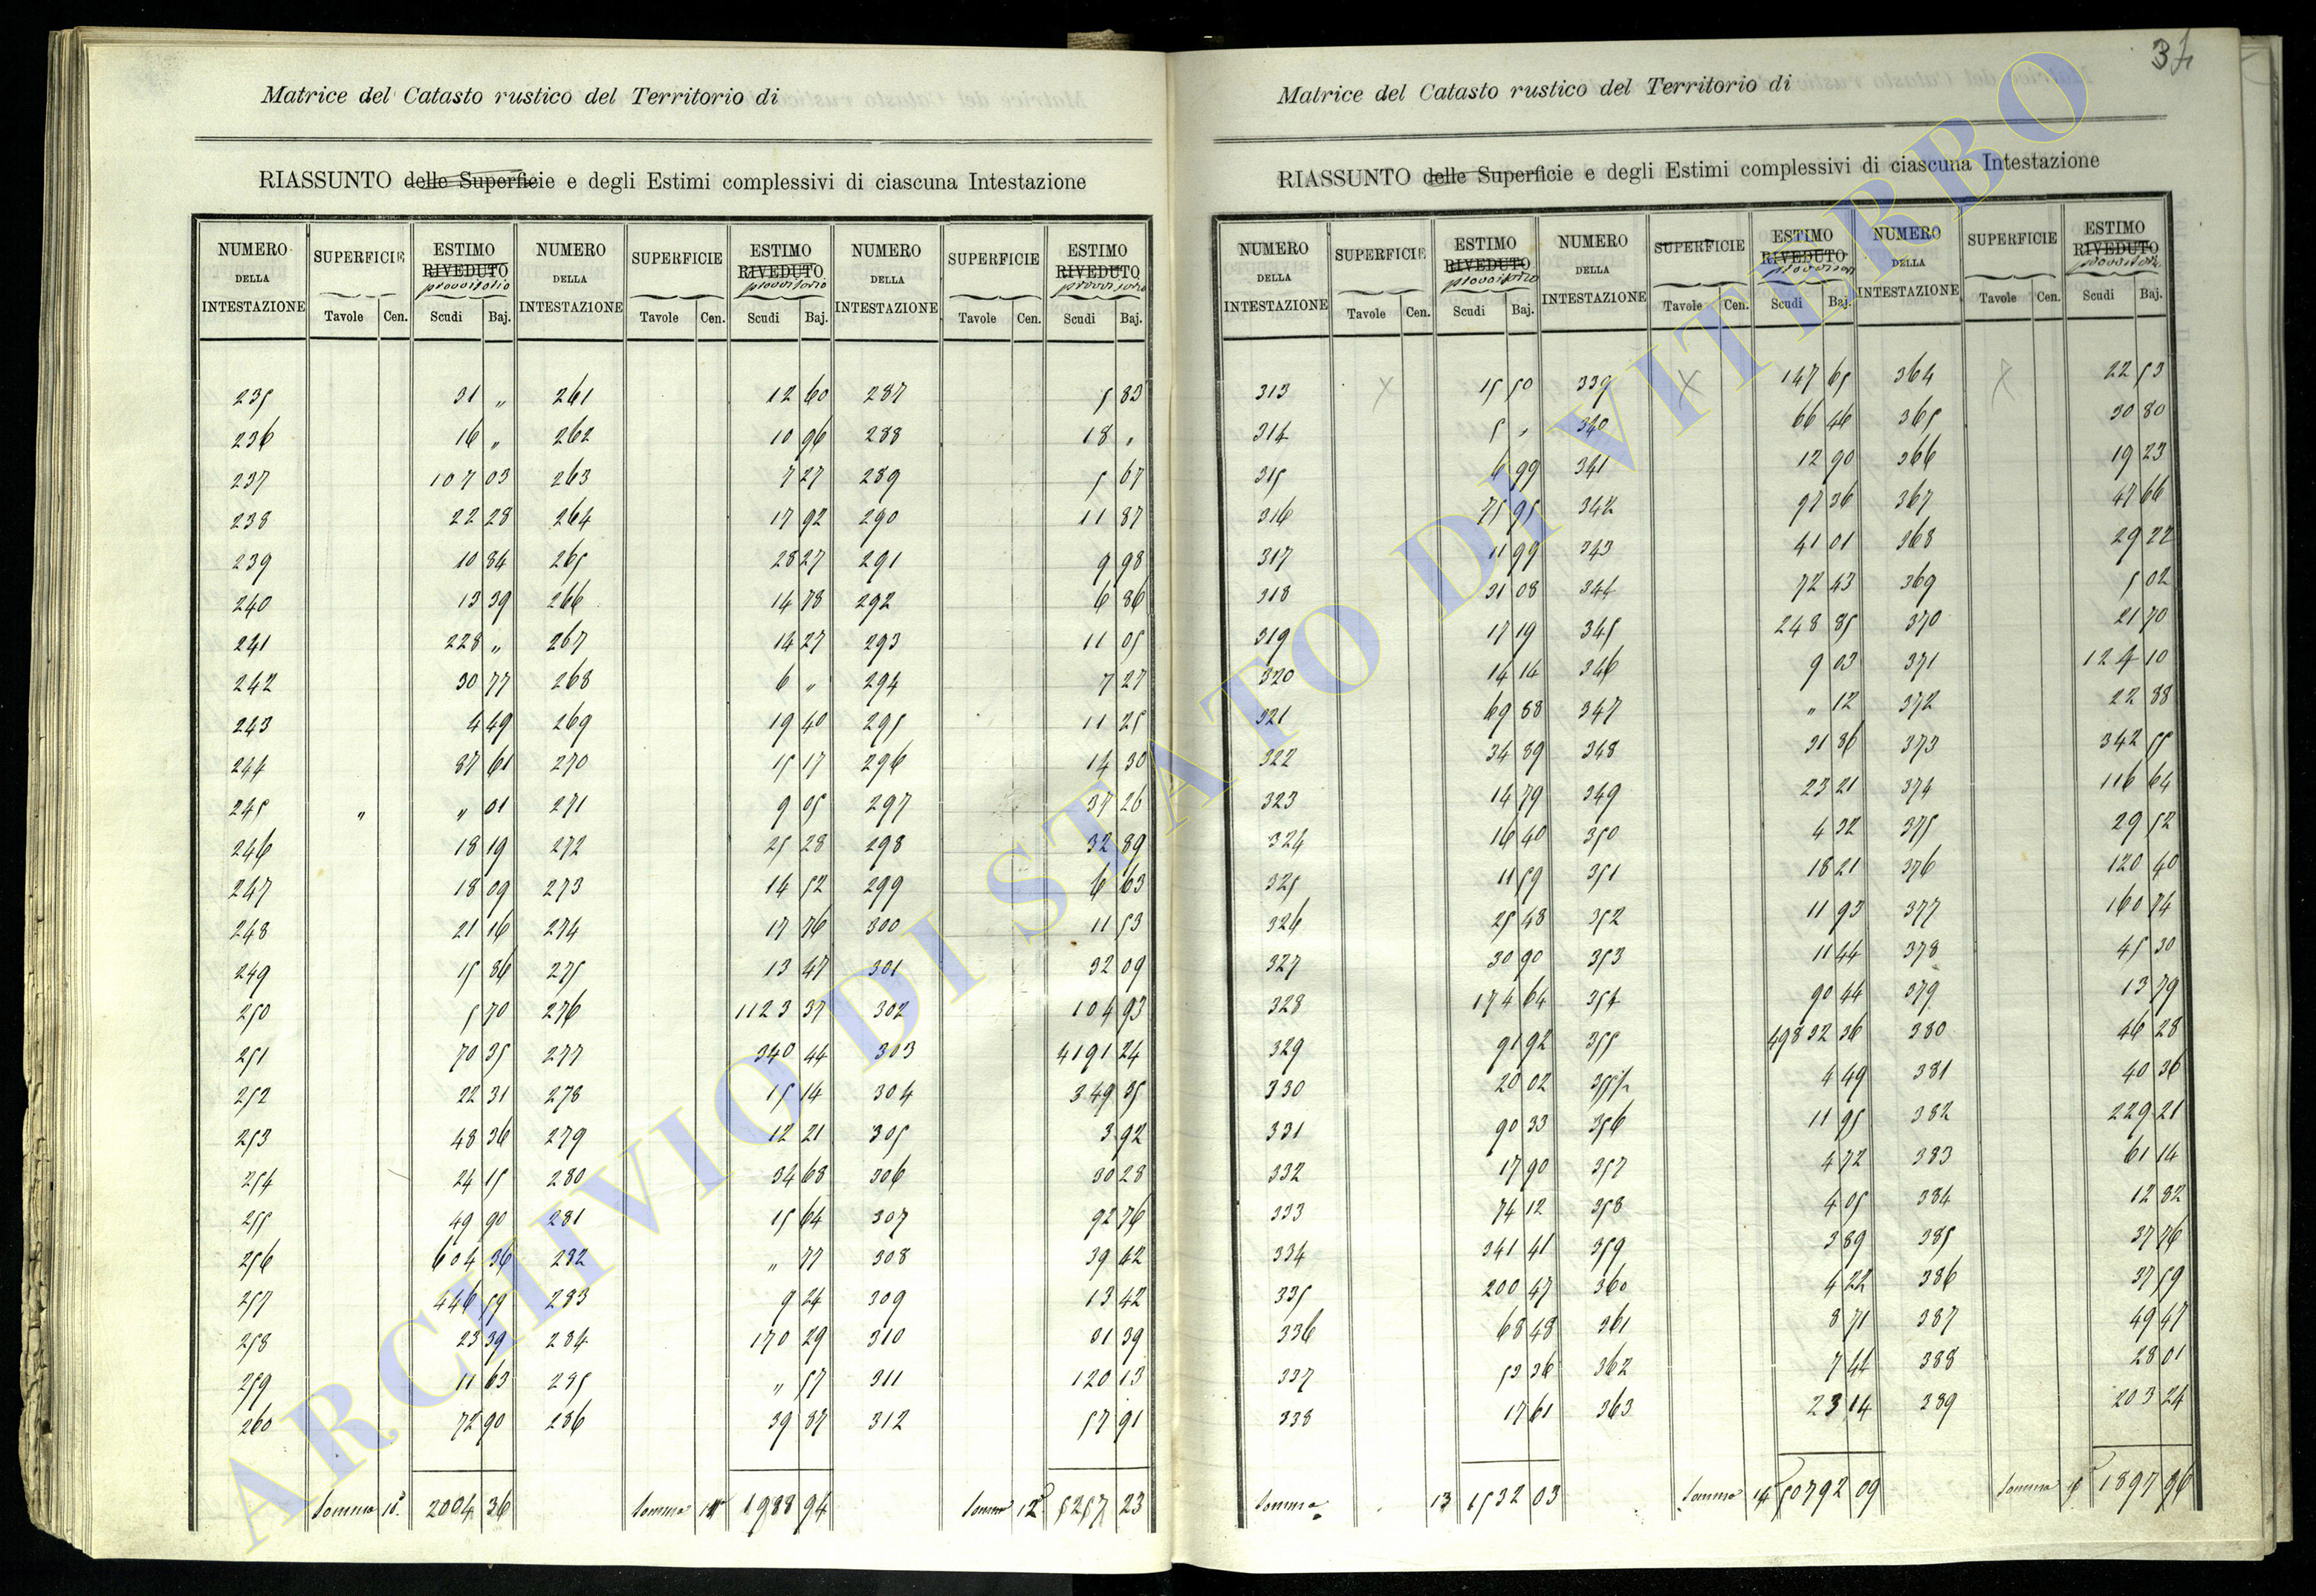 Matrice del Catasto rustico del Territorio di
RIASSUNTO delle Superficie e degli Estimi complessivi di ciascuna Intestazione
NUMERO DELLA INTESTAZIONE SUPERFICIE Tavole Cen. ESTIMO RIVEDUTO provvisorio Scudi Baj. NUMERO DELLA INTESTAZIONE SUPERFICIE Tavole Cen. ESTIMO RIVEDUTO provvisorio Scudi Baj. NUMERO DELLA INTESTAZIONE SUPERFICIE Tavole Cen. ESTIMO RIVEDUTO provvisorio Scudi Baj.
235 31 „ 261 12 60 287 5 83
236 16 „ 262 10 96 288 18 „
237 107 03 263 7 27 289 5 67
238 22 28 264 17 92 290 11 87
239 10 84 265 28 27 291 9 98
240 13 39 266 14 78 292 6 86
241 228 „ 267 14 27 293 11 05
242 30 77 268 6 „ 294 7 27
243 4 49 269 19 40 295 11 25
244 37 61 270 15 17 296 14 30
245 „ „ 01 271 9 05 297 37 26
246 18 19 272 25 28 298 32 89
247 18 09 273 14 52 299 6 63
248 21 16 274 17 76 300 11 53
249 15 86 275 13 47 301 32 09
250 5 70 276 1123 37 302 104 93
251 70 35 277 340 44 303 4191 24
252 22 31 278 15 14 304 349 35
253 48 36 279 12 21 305 3 92
254 24 15 280 34 68 306 30 28
255 49 90 281 15 64 307 92 76
256 604 36 282 „ 77 308 39 42
257 446 59 283 9 24 309 13 42
258 23 39 284 170 29 310 31 39
259 11 63 285 „ 57 311 120 13
260 72 90 286 39 87 312 57 91
Somma 10ª 2004 36 Somma 11ª 1988 94 Somma 12ª 5257 23
Matrice del Catasto rustico del Territorio di
RIASSUNTO delle Superficie e degli Estimi complessivi di ciascuna Intestazione
NUMERO DELLA INTESTAZIONE SUPERFICIE Tavole Cen. ESTIMO RIVEDUTO provvisorio Scudi Baj. NUMERO DELLA INTESTAZIONE SUPERFICIE Tavole Cen. ESTIMO RIVEDUTO provvisorio Scudi Baj. NUMERO DELLA INTESTAZIONE SUPERFICIE Tavole Cen. ESTIMO RIVEDUTO provvisorio Scudi Baj.
313 15 50 339 147 65 364 22 53
314 5 „ 340 66 46 365 30 80
315 6 99 341 12 90 366 19 23
316 75 95 342 97 36 367 47 66
317 11 99 343 41 01 368 29 22
318 31 08 344 72 43 369 5 02
319 17 19 345 248 85 370 21 70
320 14 14 346 9 03 371 124 10
321 69 88 347 „ 12 372 22 88
322 34 89 348 31 86 373 342 55
323 14 79 349 23 21 374 116 64
324 16 40 350 4 32 375 29 52
325 11 59 351 18 21 376 120 40
326 25 48 352 11 93 377 160 74
327 30 90 353 11 44 378 45 30
328 174 64 354 90 44 379 13 79
329 91 92 355 49832 36 380 46 28
330 20 02 4 49 381 40 36
331 90 33 356 11 95 382 229 21
332 17 90 357 4 72 383 61 14
333 74 12 358 4 05 384 12 82
334 341 41 359 3 89 385 37 76
335 200 47 360 4 22 386 37 59
336 68 48 361 8 71 387 49 47
337 53 36 362 7 44 388 28 01
338 17 61 363 23 14 389 203 24
Somma 13 1532 03 Somma 14 50792 09 Somma 1897 96
ARCHIVIO DI STATO DI VITERBO